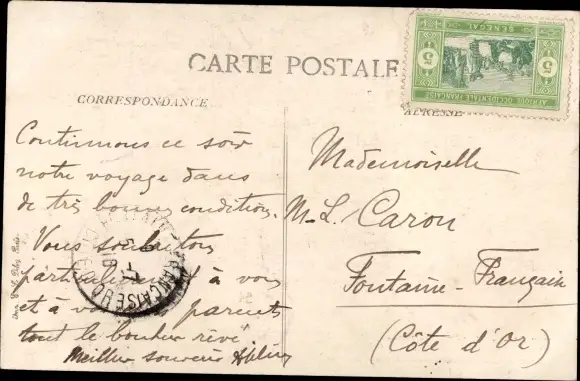 CARTE POSTALE
CORRESPONDANCE
ADRESSE
Continuons ce soir
notre voyage dans
de très bonnes condition.
Vous souhaitons
à vous
et à parents
tout le bonheur rêvé
Meilleurs souvenirs
Mademoiselle
M-L. Caron
Fontaine-Française
(Côte d'Or)
5 SENEGAL 5
AFRIQUE OCCIDENTALE FRANÇAISE